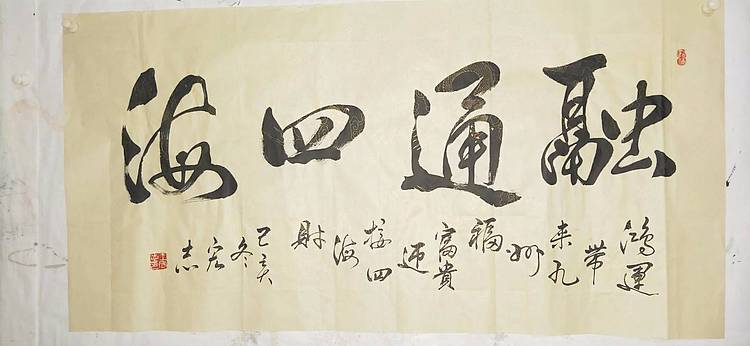 融通四海
鴻運
带
来九
州
福
富貴
迎
接四
海
财
己亥
冬
宏
志